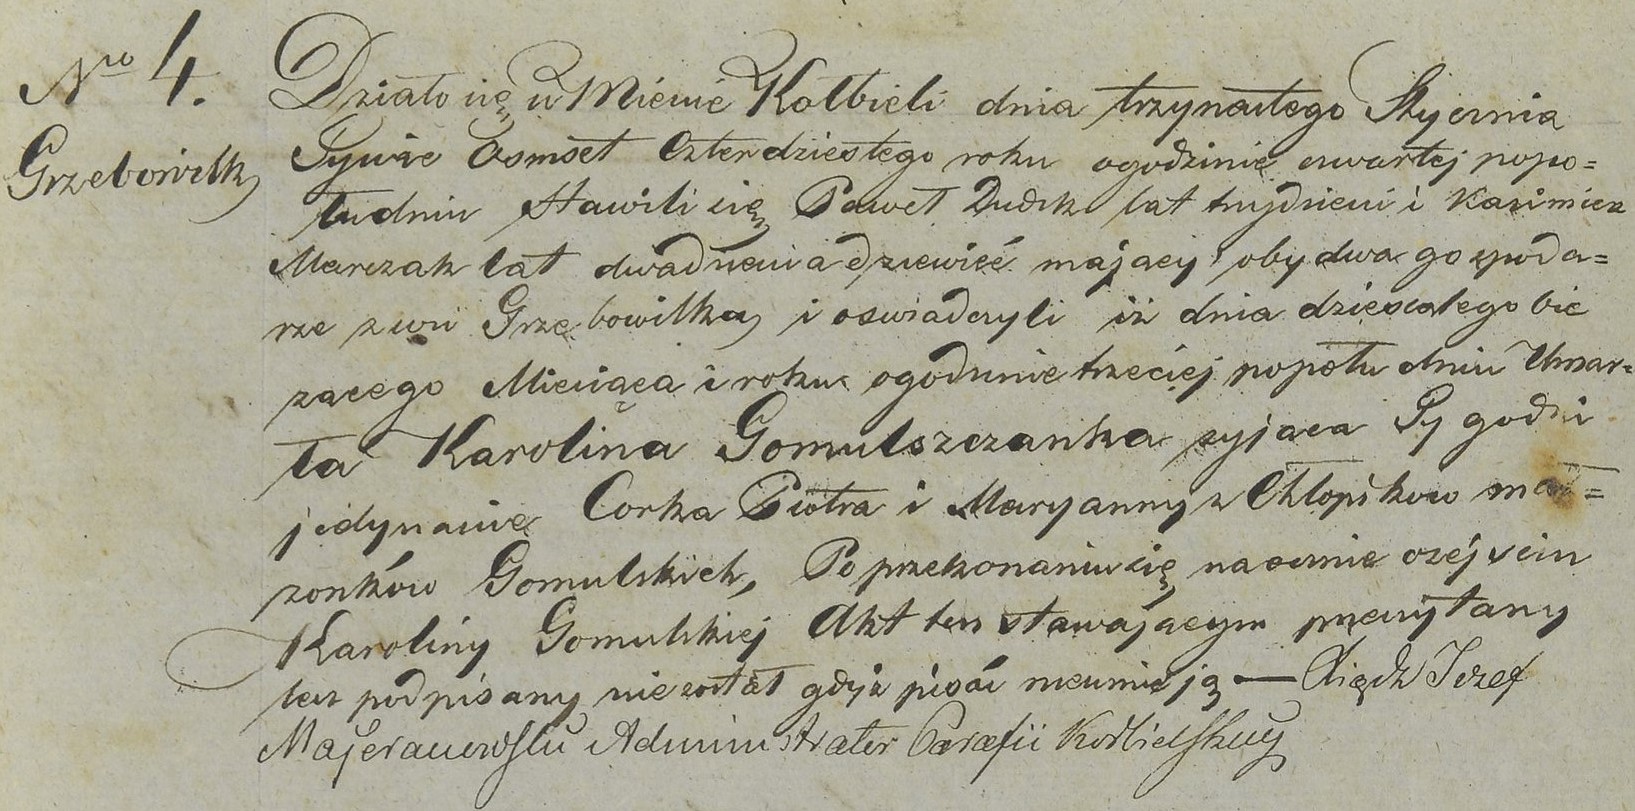 Nro 4.
Grzebowilk
Działo się w Mieście Kolbieli dnia trzynastego Stycznia
Tysiąc Osmset Czterdziestego roku ogodzinie czwartej popo=
łudniu Stawili się Paweł Dudek lat trzydzieści i Kazimierz
Marczak lat dwadzieścia dziewięć mający obydwa gospoda=
rze zwsi Grzebowilka i oswiadczyli iż dnia dziesiątego bie
zacego Miesiąca i roku ogodzinie trzeciej popołudniu Umar=
ła Karolina Gomulszczanka zyjaca Tygodni
jedynaście Corka Piotra i Maryanny z Chłopikow mał=
zonków Gomulskich, Po przekonaniu się naocznie ozejsciu
Karoliny Gomulskiej Akt ten stawającym przeczytany
lecz podpisany niezostał gdyż pisać nieumieją — Xiądz Jozef
Majeranowski Administrator Parafii Kołbielskiey